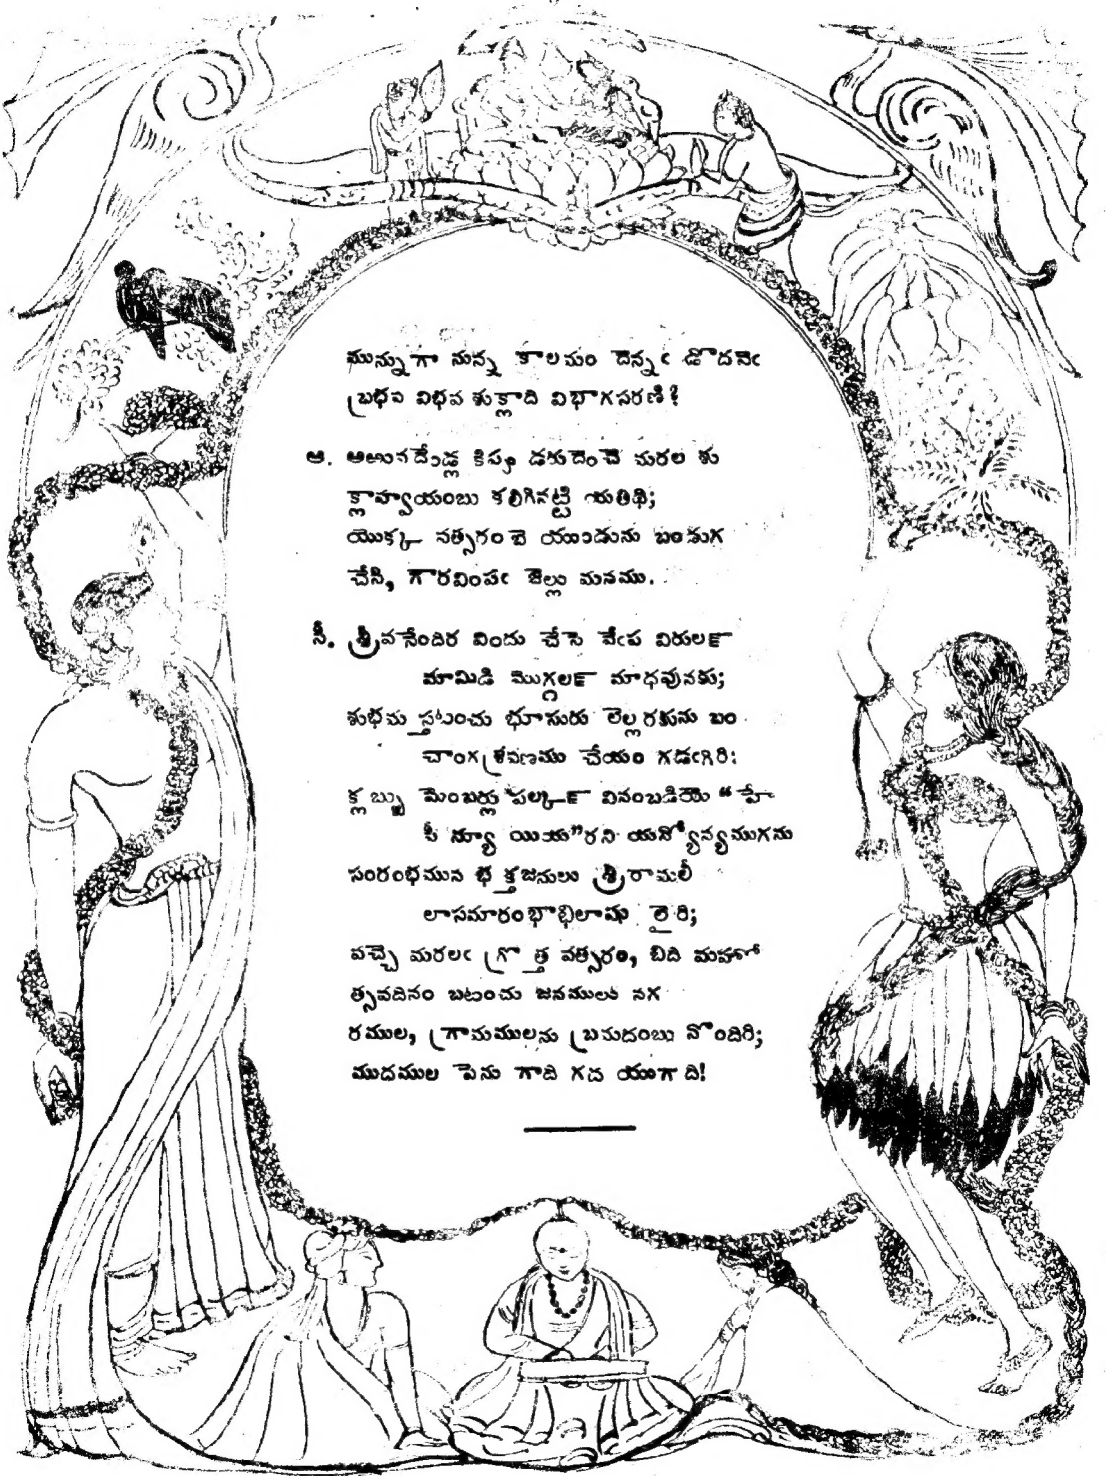 మున్నుగా నున్న కాలమం దెన్నఁ డొదవెఁ
బ్రభవ విభవ శుక్లాది విభాగసరణి?
ఆ. అఱువదేండ్ల కిప్పు డరుదెంచె మరల శు
క్లాహ్వయంబు కలిగినట్టి యతిథి;
యొక్క వత్సరం బె యుండును బండుగ
చేసి, గారవింపఁ జెల్లు మనము.
సీ. శ్రీవనేందిర విందు చేసె వేఁప విరులన్
మామిడి మొగ్గలన్ మాధవునకు;
శుభమ స్తటంచు భూసురు లెల్లరకును బం
చాంగశ్రవణము చేయం గడఁగిరి;
క్లబ్బు మెంబర్లు పల్కన్ వినంబడియె "హే
పీ న్యూ యియ"ర్రని యన్యోన్యముగను
సంరంభమున భక్తజనులు శ్రీరామలీ
లాసమారంభాభిలాషు లైరి;
వచ్చె మరలఁ గ్రొత్త వత్సరం, బిది మహో
త్సవదినం బటంచు జనములు నగ
రముల, గ్రామములను బ్రమదంబు నొందిరి;
ముదముల పెను గాది గద యుగాది!